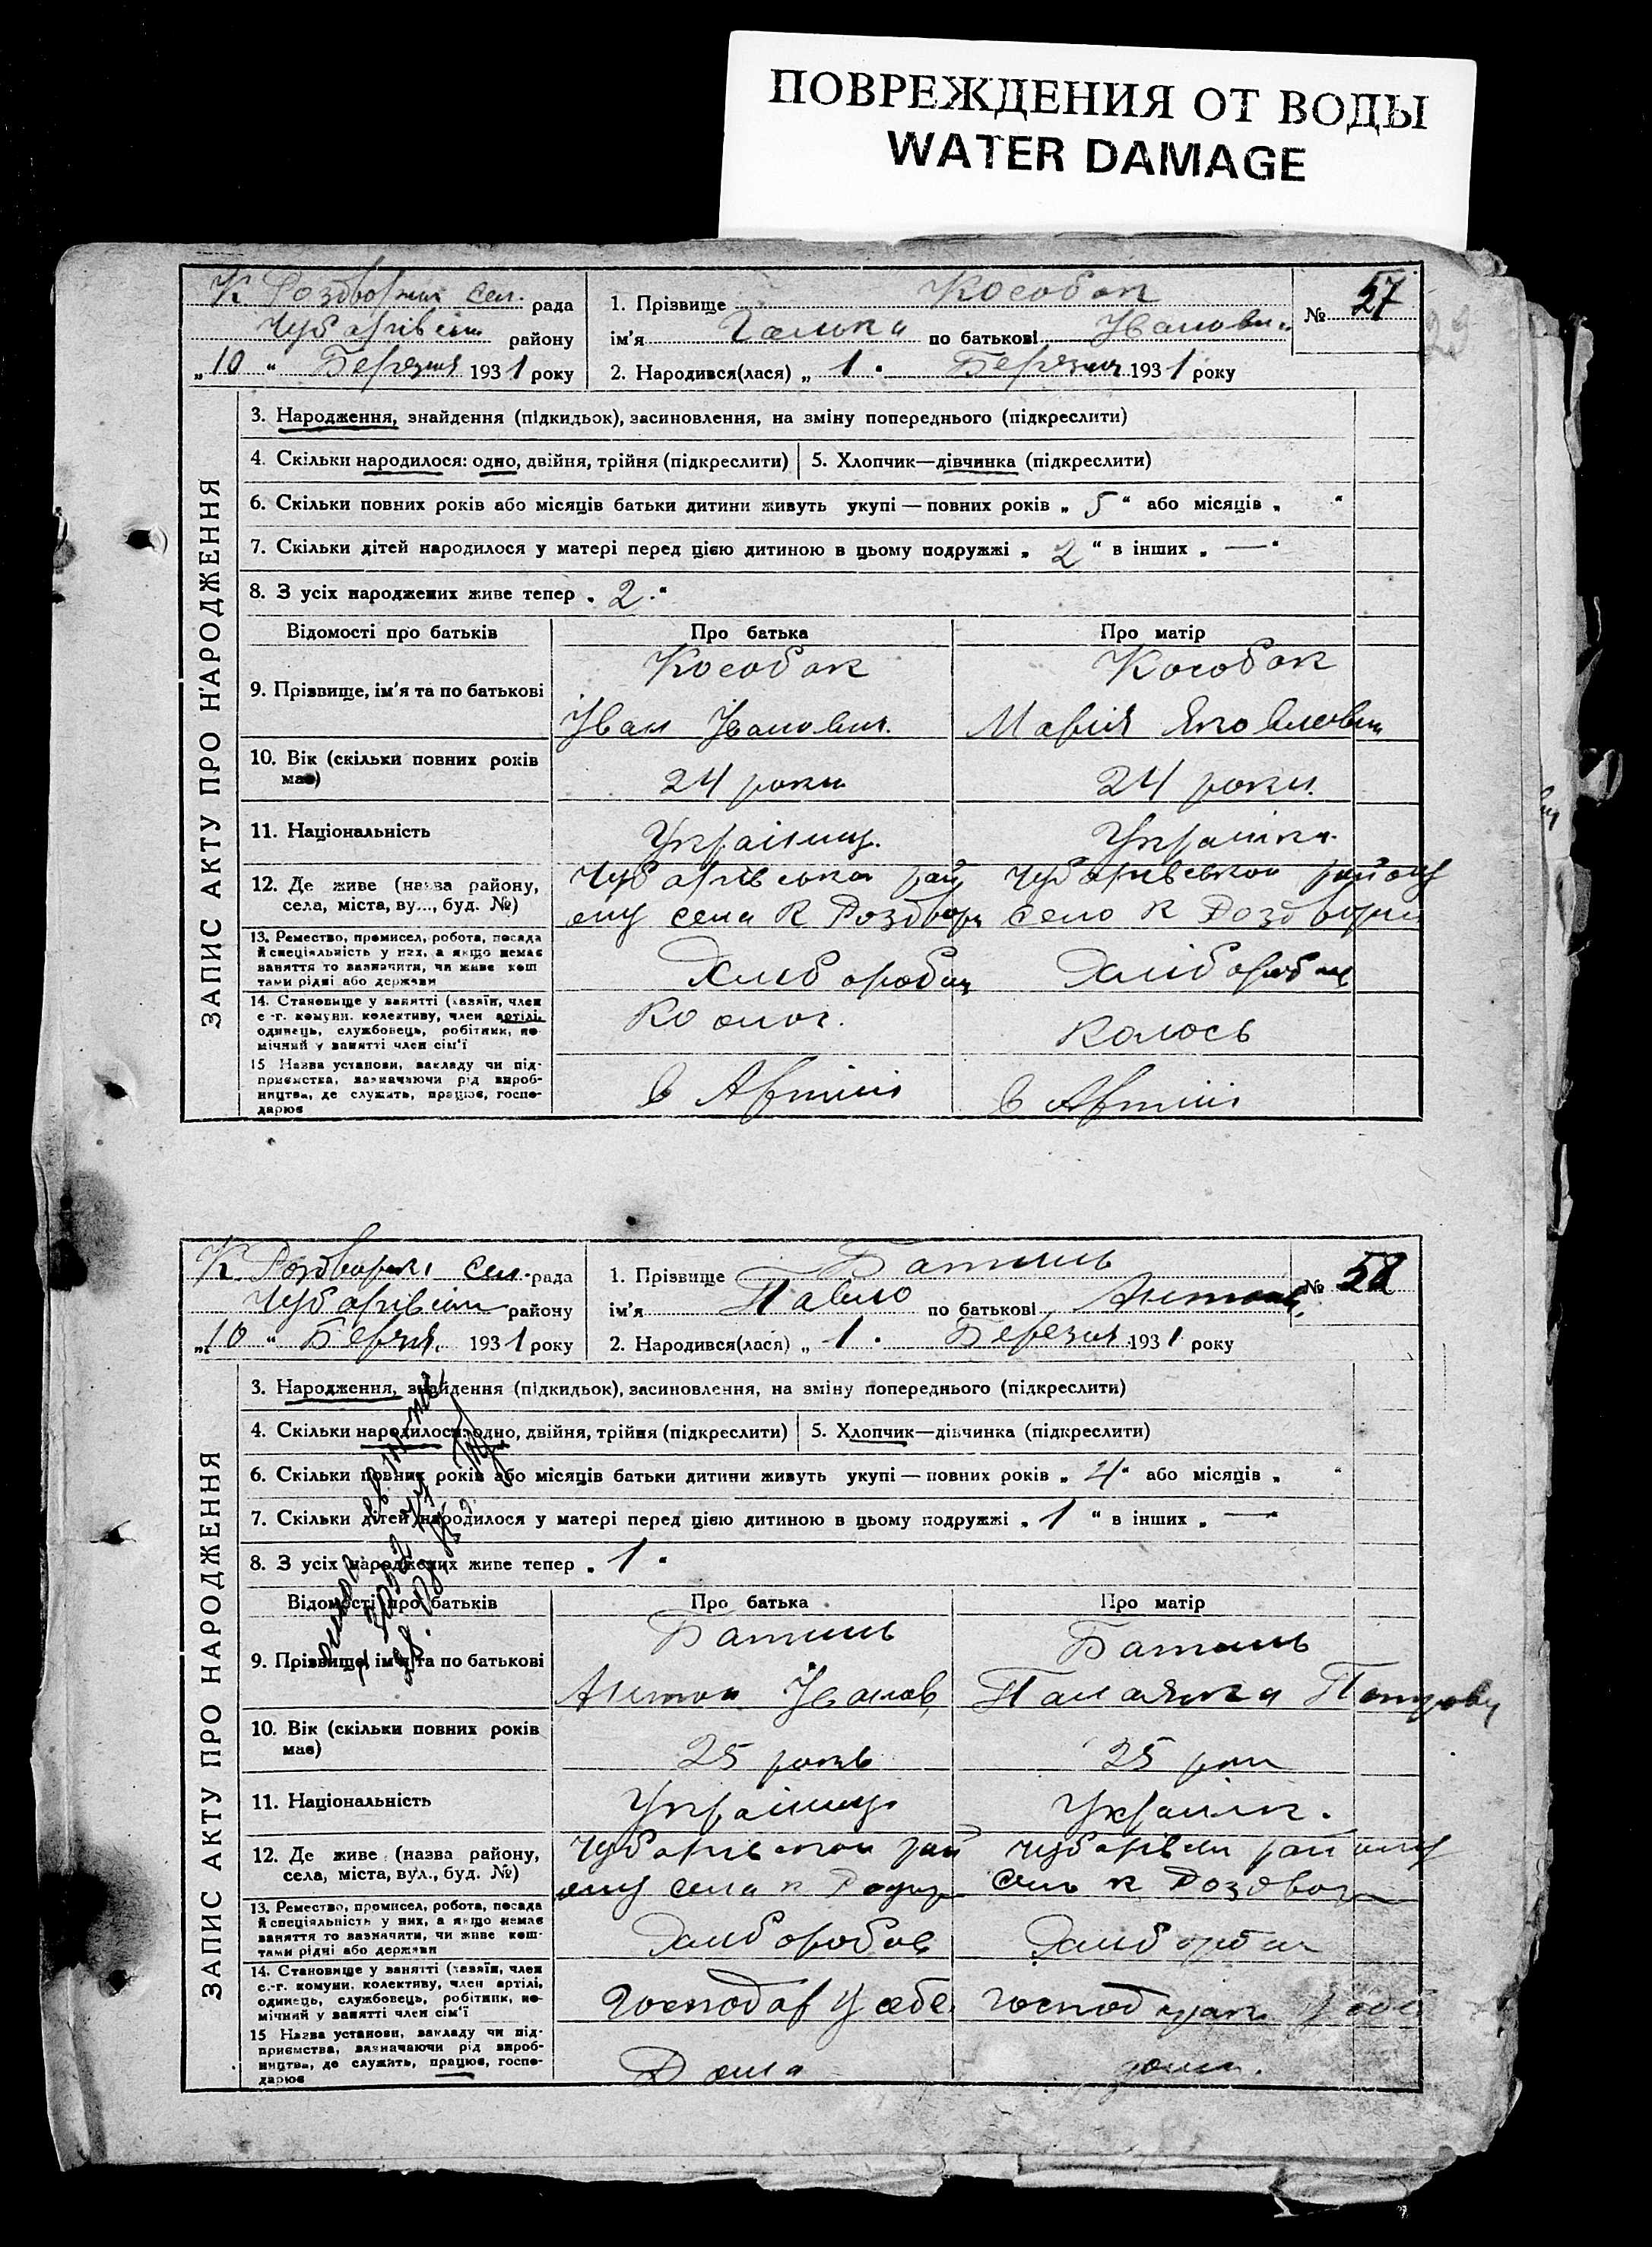 ПОВРЕЖДЕНИЯ ОТ ВОДЫ
WATER DAMAGE
К Роздворни сел. рада
Чубарівськ району
„10“ Березня 1931 року
1. Прізвище Кособок
ім'я Галька по батькові Іванови
2. Народився(лася) „1“ Березня 1931 року
№ 57
ЗАПИС АКТУ ПРО НАРОДЖЕННЯ
3. Народження, знайдення (підкидьок), засиновлення, на зміну попереднього (підкреслити)
4. Скільки народилося: одно, двійня, трійня (підкреслити) 5. Хлопчик—дівчинка (підкреслити)
6. Скільки повних років або місяців батьки дитини живуть укупі — повних років „5“ або місяців „ “
7. Скільки дітей народилося у матері перед цією дитиною в цьому подружжі „2“ в інших „—“
8. З усіх народжених живе тепер „2“
Відомості про батьків Про батька Про матір
9. Прізвище, ім'я та по батькові
Кособок
Іван Іванович
Кособок
Марія Яковлевн
10. Вік (скільки повних років має)
24 роки 24 роки
11. Національність
Українец Українка
12. Де живе (назва району,
села, міста, ву..., буд. №)
Чубарівськой рай
ону села К Роздвори
Чубарівськой району
село К Роздворни
13. Ремество, промисел, робота, посада
й спеціяльність у них, а якщо немає
заняття то зазначити, чи живе кош
тами рідні або держави
Хлібороб Хлібороб
14. Становище у занятті (хазяїн, член
с.-г. комуни, колективу, член артілі,
одинець, службовець, робітник, по-
мічний у занятті член сім'ї
Колос
15 Назва установи, закладу чи під-
приємства, зазначаючи рід вироб-
ництва, де служить, працює, госпо-
дарює
в Артілі в Артілі
К Роздворни сел. рада
Чубарівськ району
„10“ Берзня 1931 року
1. Прізвище
ім'я Павло по батькові Антонов
2. Народився(лася) „1“ Березня 1931 року
№ 58
ЗАПИС АКТУ ПРО НАРОДЖЕННЯ
3. Народження, знайдення (підкидьок), засиновлення, на зміну попереднього (підкреслити)
4. Скільки народилося: одно, двійня, трійня (підкреслити) 5. Хлопчик—дівчинка (підкреслити)
6. Скільки повних років або місяців батьки дитини живуть укупі — повних років „4“ або місяців „ “
7. Скільки дітей народилося у матері перед цією дитиною в цьому подружжі „1“ в інших „—“
8. З усіх народжених живе тепер „1“
Відомості про батьків Про батька Про матір
9. Прізвище, ім'я та по батькові
Антон Іванов
10. Вік (скільки повних років має)
25 років 25 рок
11. Національність
Українец Українк.
12. Де живе (назва району,
села, міста, вул., буд. №)
Чубарівськой рай
ону села к
Чубарівськ району
село к Роздвор
13. Ремество, промисел, робота, посада
й спеціяльність у них, а якщо немає
заняття то зазначити, чи живе кош-
тами рідні або держави
Хлібороб Хлібороб
14. Становище у занятті (хазяїн, член
с.-г. комуни, колективу, член артілі,
одинець, службовець, робітник, по-
мічний у занятті член сім'ї
Господар У себе
15 Назва установи, закладу чи під-
приємства, зазначаючи рід вироб-
ництва, де служить, працює, госпо-
дарює
Дома дома.